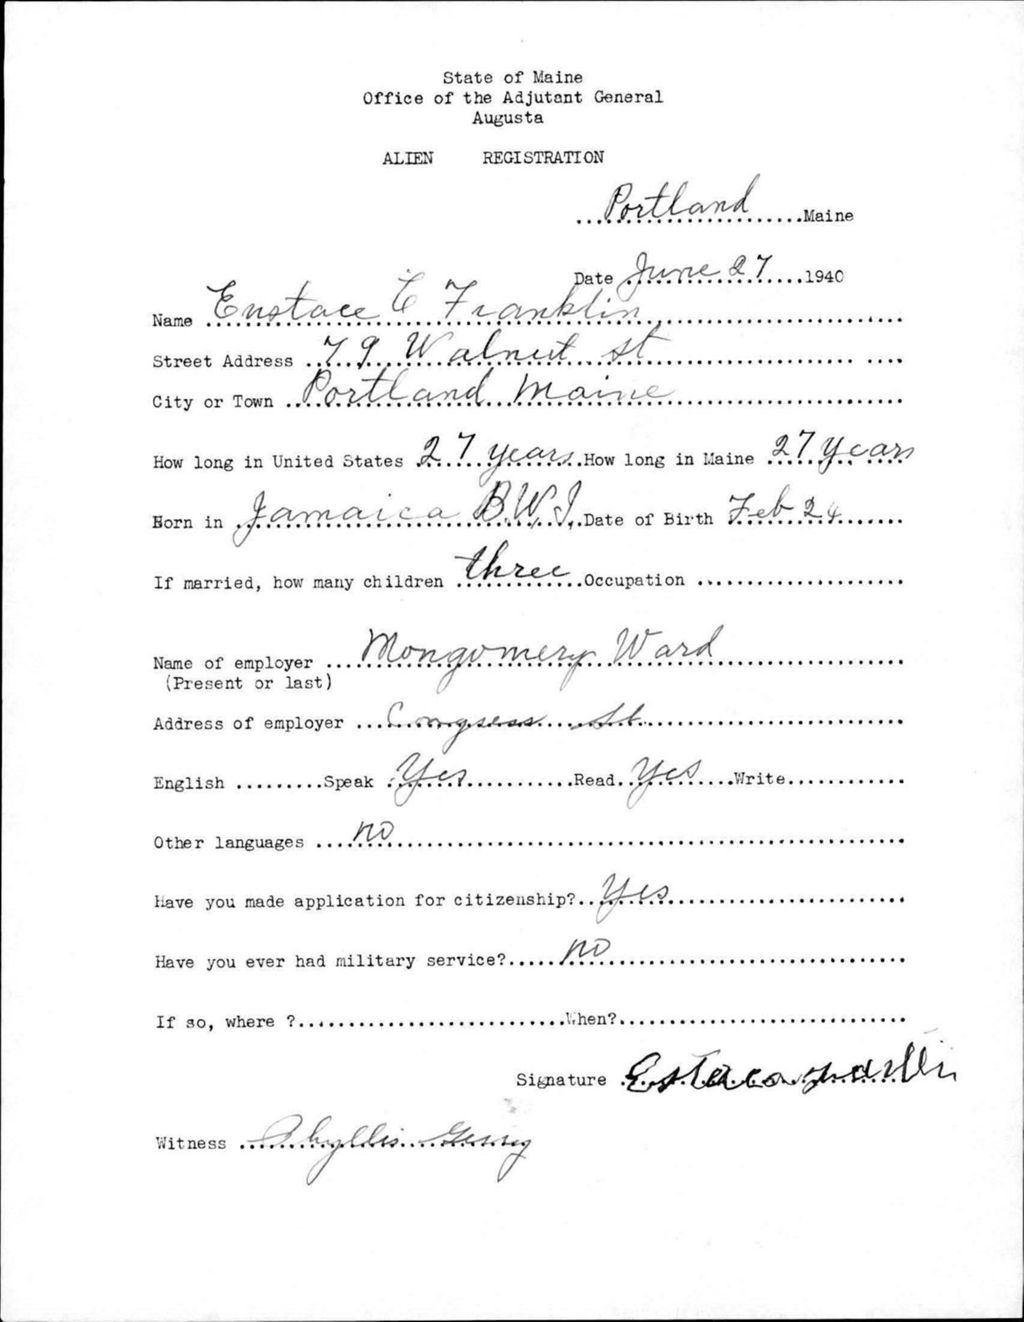 State of Maine
Office of the Adjutant General
Augusta
ALIEN REGISTRATION
Portland Maine
Date June 27 1940
Name Eustace C Franklin
Street Address 79 Walnut St
City or Town Portland Maine
How long in United States 27 years How long in Maine 27 Years
Born in Jamaica B.W.I. Date of Birth Feb 24
If married, how many children three Occupation
Name of employer Mongomery Ward
(Present or last)
Address of employer Congress St.
English Speak Yes Read Yes Write
Other languages no
Have you made application for citizenship? Yes
Have you ever had military service? no
If so, where ? When?
Signature
Witness Phyllis